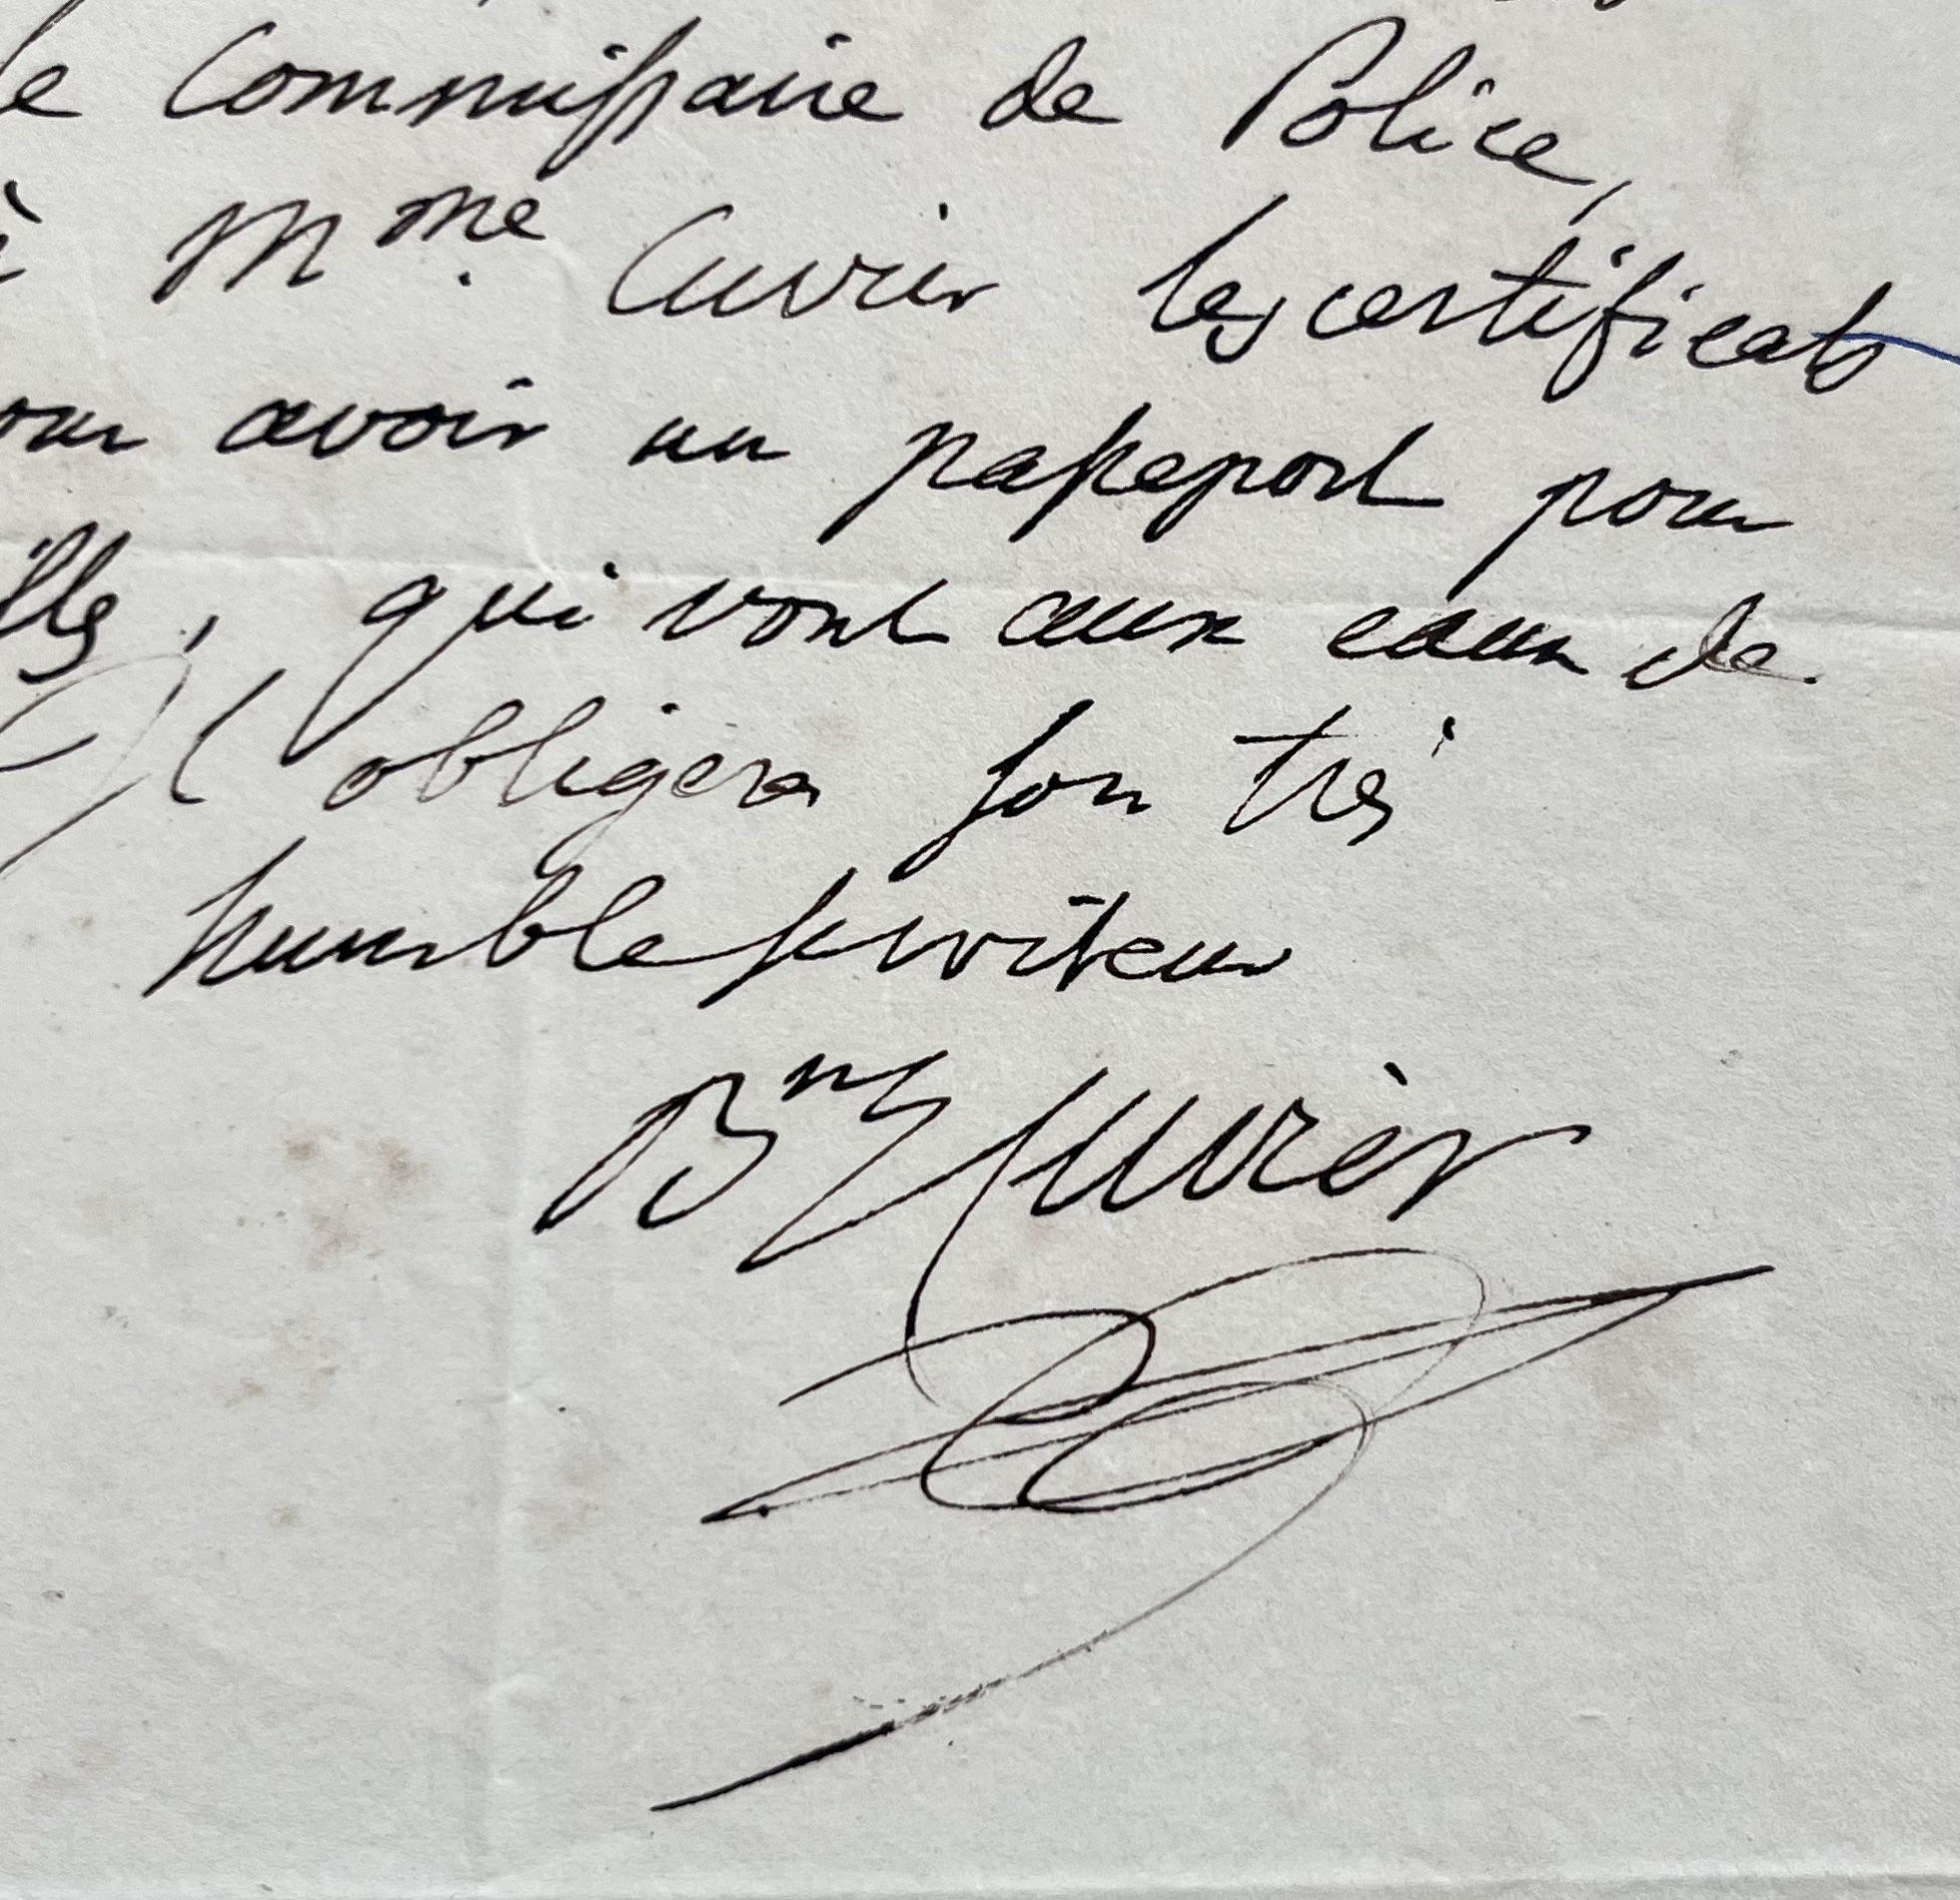 le Commissaire de Police,
à Mme. Cuvier les certificats
our avoir un passeport pour
illes, qui vont aux eaux de
Il obligera son très
humble serviteur
Bon Cuvier